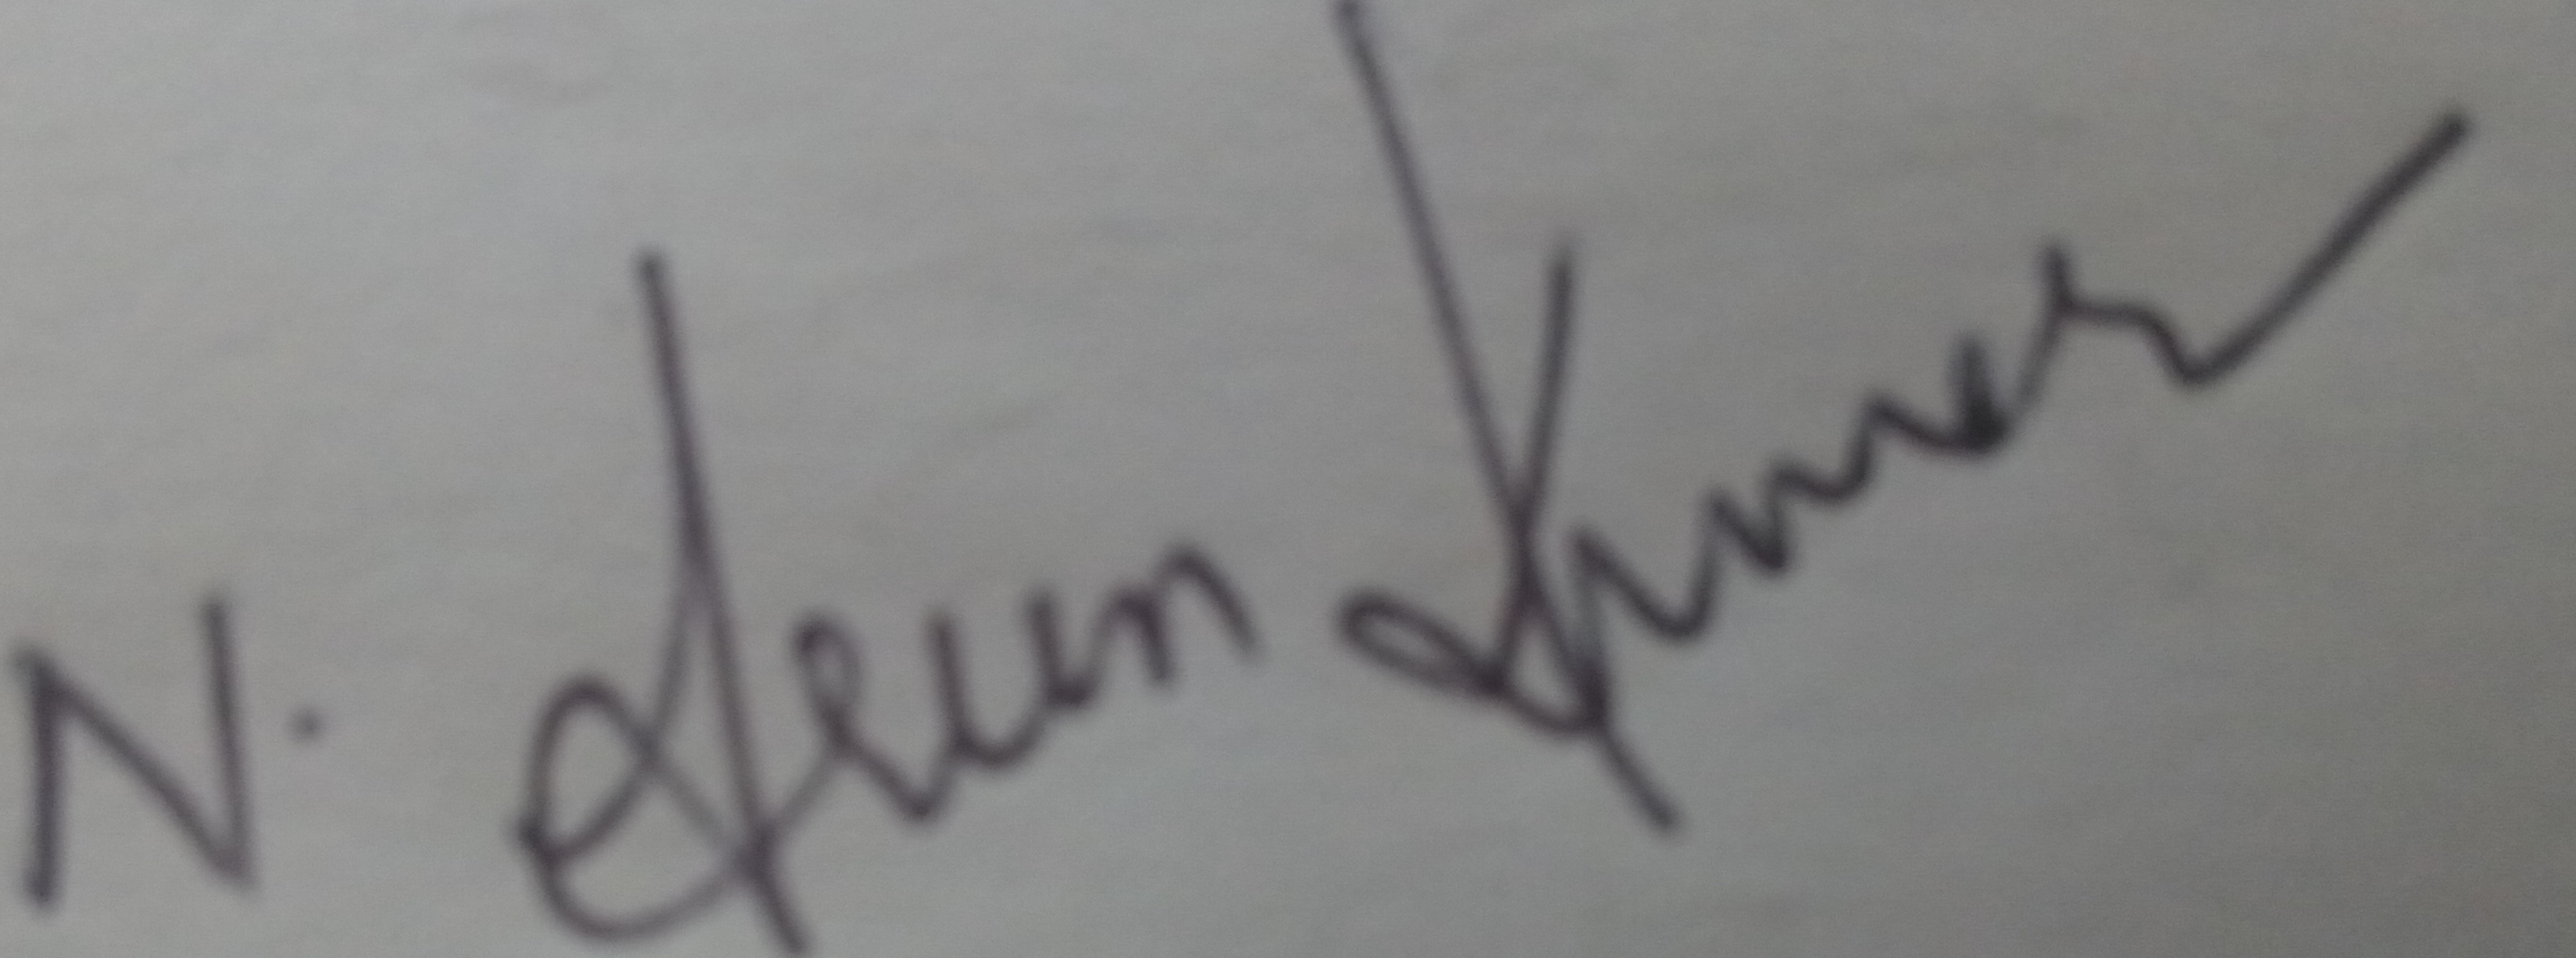 N. Arun Kumar